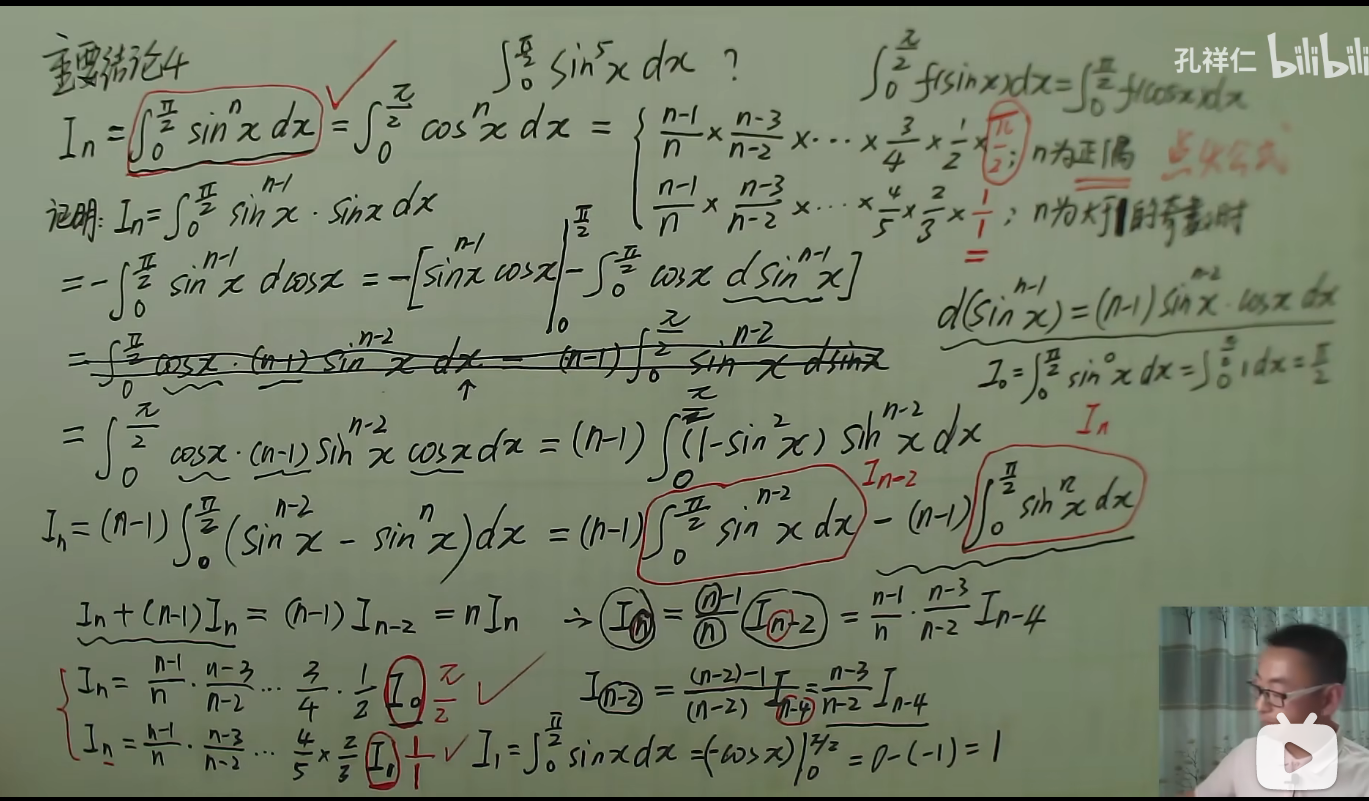 主要结论4 ∫₀^{π/2} sin⁵x dx ? ∫₀^{π/2} f(sinx)dx = ∫₀^{π/2} f(cosx)dx
孔祥仁 bilibili
Iₙ = ∫₀^{π/2} sinⁿx dx = ∫₀^{π/2} cosⁿx dx = { (n-1)/n × (n-3)/(n-2) × ··· × 3/4 × 1/2 × π/2 ; n为正偶 点火公式
(n-1)/n × (n-3)/(n-2) × ··· × 4/5 × 2/3 × 1/1 ; n为大于1的奇数时
证明: Iₙ = ∫₀^{π/2} sin^{n-1}x · sinx dx
= -∫₀^{π/2} sin^{n-1}x dcosx = -[sin^{n-1}x cosx |₀^{π/2} - ∫₀^{π/2} cosx dsin^{n-1}x]
d(sin^{n-1}x) = (n-1) sin^{n-2}x · cosx dx
= ∫₀^{π/2} cosx · (n-1) sin^{n-2}x dx = (n-1) ∫₀^{π/2} sin^{n-2}x dsinx
I₀ = ∫₀^{π/2} sin⁰x dx = ∫₀^{π/2} 1 dx = π/2
= ∫₀^{π/2} cosx · (n-1) sin^{n-2}x cosx dx = (n-1) ∫₀^{π/2} (1-sin²x) sin^{n-2}x dx
Iₙ = (n-1) ∫₀^{π/2} (sin^{n-2}x - sinⁿx) dx = (n-1) ∫₀^{π/2} sin^{n-2}x dx I_{n-2} - (n-1) ∫₀^{π/2} sinⁿx dx Iₙ
Iₙ + (n-1)Iₙ = (n-1) I_{n-2} = nIₙ → Iₙ = (n-1)/n I_{n-2} = (n-1)/n · (n-3)/(n-2) I_{n-4}
{ Iₙ = (n-1)/n · (n-3)/(n-2) ··· 3/4 · 1/2 I₀ π/2 ✓ I_{n-2} = ((n-2)-1)/(n-2) I_{n-4} = (n-3)/(n-2) I_{n-4}
Iₙ = (n-1)/n · (n-3)/(n-2) ··· 4/5 × 2/3 I₁ 1/1 ✓ I₁ = ∫₀^{π/2} sinx dx = (-cosx)|₀^{π/2} = 0-(-1) = 1